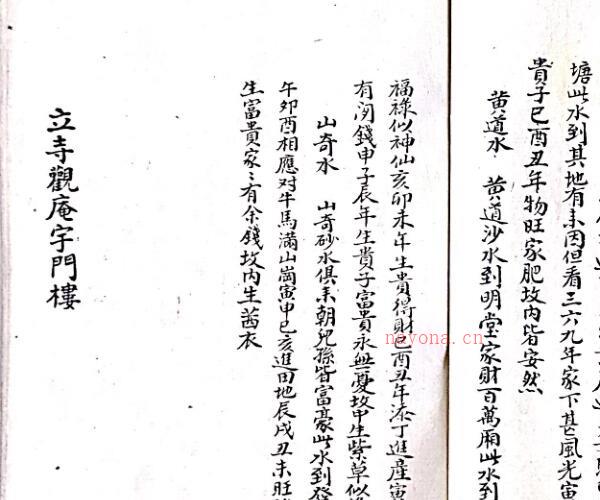 塘此水到其地有来因但看三六九年家下甚風光寅
貴子巳酉丑年物旺家肥坟内皆安然
黄道水 黄道沙水到明堂家財百萬厢此水到
福祿似神仙亥卯未年生貴得財巳酉丑年添丁進産寅
有閃錢申子辰年生貴子富貴永無憂坟中生紫草似
山奇水 山奇砂水俱来朝兒孫皆富豪此水到發
午卯酉相應对牛馬满山崗寅申巳亥進田地辰戌丑未旺
生富貴家〻有余錢坟内生茜衣
立寺觀庵字門樓
nayona.cn